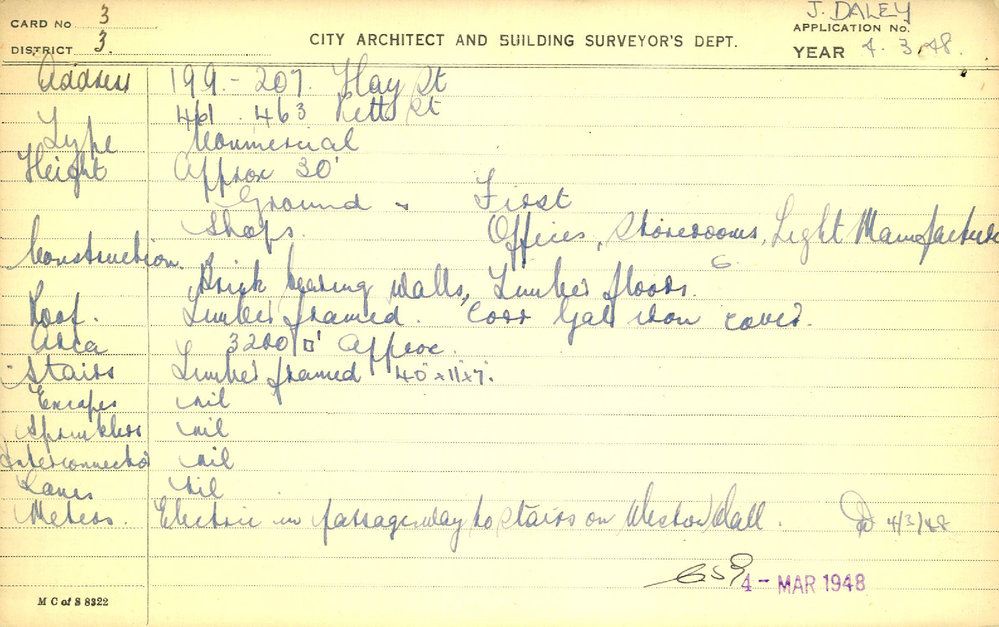 CARD No 3
J. DALEY
APPLICATION No.
DISTRICT 3.
CITY ARCHITECT AND BUILDING SURVEYOR'S DEPT.
YEAR 4.3.48.
Address 199.-207. Hay St
461 . 463 Pitt St
Type Commercial
Height Approx 30'
Ground - First
Shops. Offices, Storerooms, Light Manufacture
Construction. Brick bearing walls, Timber floors.
Roof. Timber framed. Corr Gal iron cover.
Area 3200 □' Approx.
Stairs Timber framed 40"x11"x7".
Escapes nil
Sprinklers nil
Interconnection nil
Lanes nil
Meters. Electric in passageway to stairs on Western Wall. 4/3/48
4 - MAR 1948
M C of S 8322